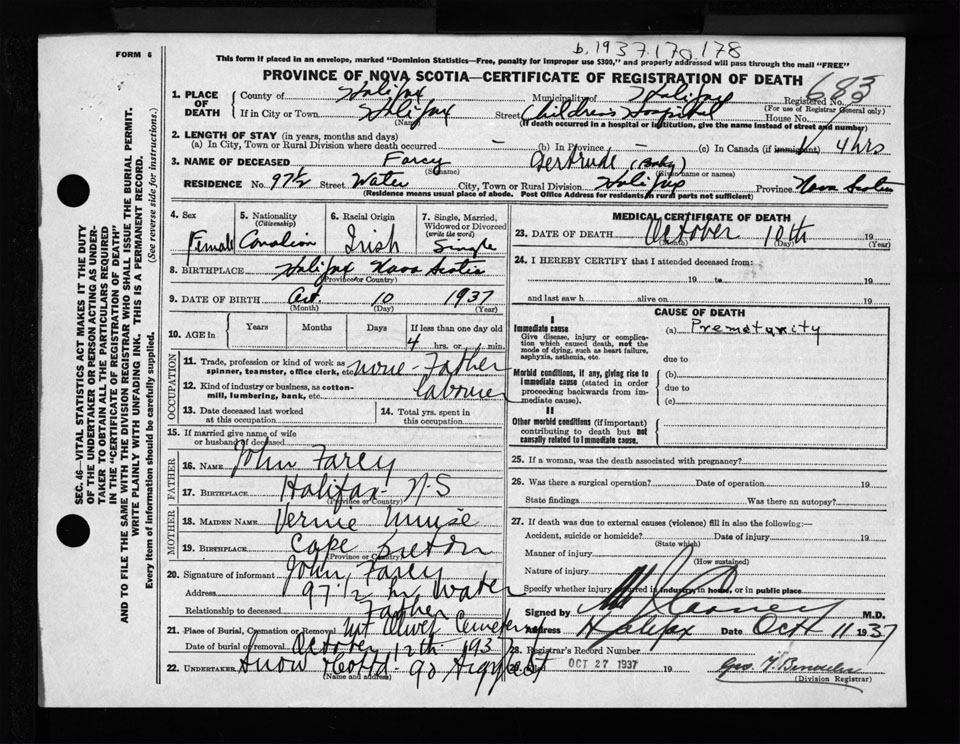 b. 1937.170.178
FORM 6
This form if placed in an envelope, marked "Dominion Statistics—Free, penalty for improper use $300," and properly addressed will pass through the mail "FREE"
PROVINCE OF NOVA SCOTIA—CERTIFICATE OF REGISTRATION OF DEATH
683
1. PLACE OF DEATH
County of Halifax Municipality of Halifax Registered No.
(For use of Registrar General only)
If in City or Town Halifax Street Children's Hospital House No.
(Name) (If death occurred in a hospital or institution, give the name instead of street and number)
2. LENGTH OF STAY (in years, months and days)
(a) In City, Town or Rural Division where death occurred - (b) In Province - (c) In Canada (if immigrant) 4 hrs
3. NAME OF DECEASED Farcy Gertrude (Baby)
(Surname) (Given name or names)
RESIDENCE No. 97½ Street Water City, Town or Rural Division Halifax Province Nova Scotia
(Residence means usual place of abode. Post Office Address for residents in rural parts not sufficient)
4. Sex Female
5. Nationality (Citizenship) Canadian
6. Racial Origin Irish
7. Single, Married, Widowed or Divorced (write the word) Single
8. BIRTHPLACE Halifax Nova Scotia
(Province or Country)
9. DATE OF BIRTH Oct. 10 1937
(Month) (Day) (Year)
10. AGE in Years Months Days If less than one day old
4 hrs. or min.
OCCUPATION
11. Trade, profession or kind of work as spinner, teamster, office clerk, etc. none - Father
12. Kind of industry or business, as cotton-mill, lumbering, bank, etc. labourer
13. Date deceased last worked at this occupation
14. Total yrs. spent in this occupation
15. If married give name of wife or husband of deceased
FATHER
16. NAME John Farcy
17. BIRTHPLACE Halifax - N-S
(Province or Country)
MOTHER
18. MAIDEN NAME Vernie Muise
19. BIRTHPLACE Cape Breton
(Province or Country)
20. Signature of informant John Farcy
Address 97 1/2 Water
Relationship to deceased Father
21. Place of Burial, Cremation or Removal Mt Olivet Cemetery
Date of burial or removal October 12th 193
22. UNDERTAKER Snow 90 Argyle St
(Name and address)
MEDICAL CERTIFICATE OF DEATH
23. DATE OF DEATH October 10th 19
(Month) (Day) (Year)
24. I HEREBY CERTIFY that I attended deceased from:
19 to 19
and last saw h alive on 19
CAUSE OF DEATH
I
Immediate cause
Give disease, injury or complication which caused death, not the mode of dying, such as heart failure, asphyxia, asthenia, etc.
(a) Prematurity
due to
Morbid conditions, if any, giving rise to immediate cause (stated in order proceeding backwards from immediate cause).
(b)
due to
(c)
II
Other morbid conditions (if important) contributing to death but not causally related to immediate cause.
25. If a woman, was the death associated with pregnancy?
26. Was there a surgical operation? Date of operation 19
State findings Was there an autopsy?
27. If death was due to external causes (violence) fill in also the following:—
Accident, suicide or homicide? Date of injury 19
(State which)
Manner of injury
(How sustained)
Nature of injury
Specify whether injury occurred in industry, in home, or in public place
Signed by M.D.
Address Halifax Date Oct 11 1937
28. Registrar's Record Number
OCT 27 1937 19
(Division Registrar)
SEC. 46—VITAL STATISTICS ACT MAKES IT THE DUTY
OF THE UNDERTAKER OR PERSON ACTING AS UNDER-
TAKER TO OBTAIN ALL THE PARTICULARS REQUIRED
IN THE "CERTIFICATE OF REGISTRATION OF DEATH"
AND TO FILE THE SAME WITH THE DIVISION REGISTRAR WHO SHALL ISSUE THE BURIAL PERMIT.
WRITE PLAINLY WITH UNFADING INK. THIS IS A PERMANENT RECORD.
Every item of information should be carefully supplied. (See reverse side for instructions.)